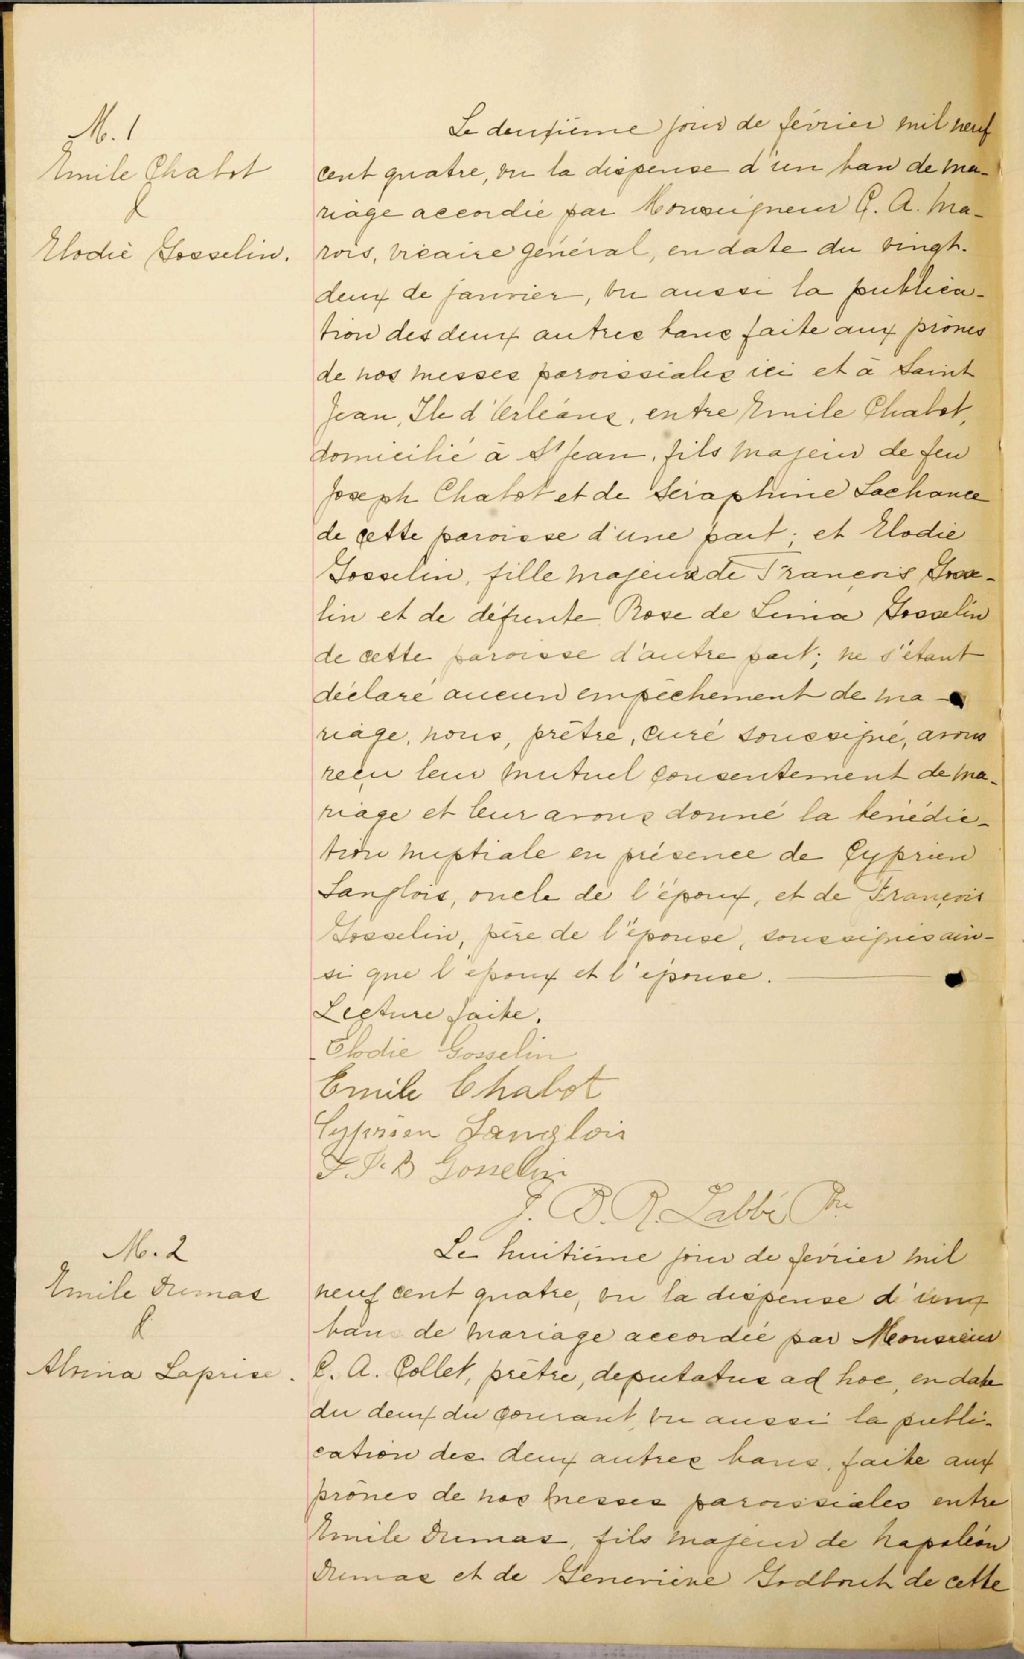 M. 1
Emile Chabot
&
Elodie Gosselin.
Le deuxième jour de février mil neuf
cent quatre, vu la dispense d'un ban de ma-
riage accordée par Monseigneur C. A. Ma-
rois, vicaire général, en date du vingt-
deux de janvier, vu aussi la publica-
tion des deux autres bans faite aux prônes
de nos messes paroissiales ici et à Saint
Jean, Ile d'Orléans, entre Emile Chabot,
domicilié à St Jean, fils majeur de feu
Joseph Chabot et de Séraphine Lachance
de cette paroisse d'une part; et Elodie
Gosselin, fille majeure de François Gosse-
lin et de défunte Rose de Lima Gosselin
de cette paroisse d'autre part; ne s'étant
déclaré aucun empêchement de ma-
riage, nous, prêtre, curé soussigné, avons
reçu leur mutuel consentement de ma-
riage et leur avons donné la bénédic-
tion nuptiale en présence de Cyprien
Langlois, oncle de l'époux, et de François
Gosselin, père de l'épouse, soussignés ain-
si que l'époux et l'épouse.
Lecture faite.
Elodie Gosselin
Emile Chabot
Cyprien Langlois
F. X. B Gosselin
J. B. R. Labbé Ptre
M. 2
Emile Dumas
&
Alvina Laprise.
Le huitième jour de février mil
neuf cent quatre, vu la dispense d'un
ban de mariage accordée par Monsieur
C. A. Collet, prêtre, deputatus ad hoc, en date
du deux du courant, vu aussi la publi-
cation des deux autres bans, faite aux
prônes de nos messes paroissiales entre
Emile Dumas, fils majeur de Napoléon
Dumas et de Geneviève Godbout de cette